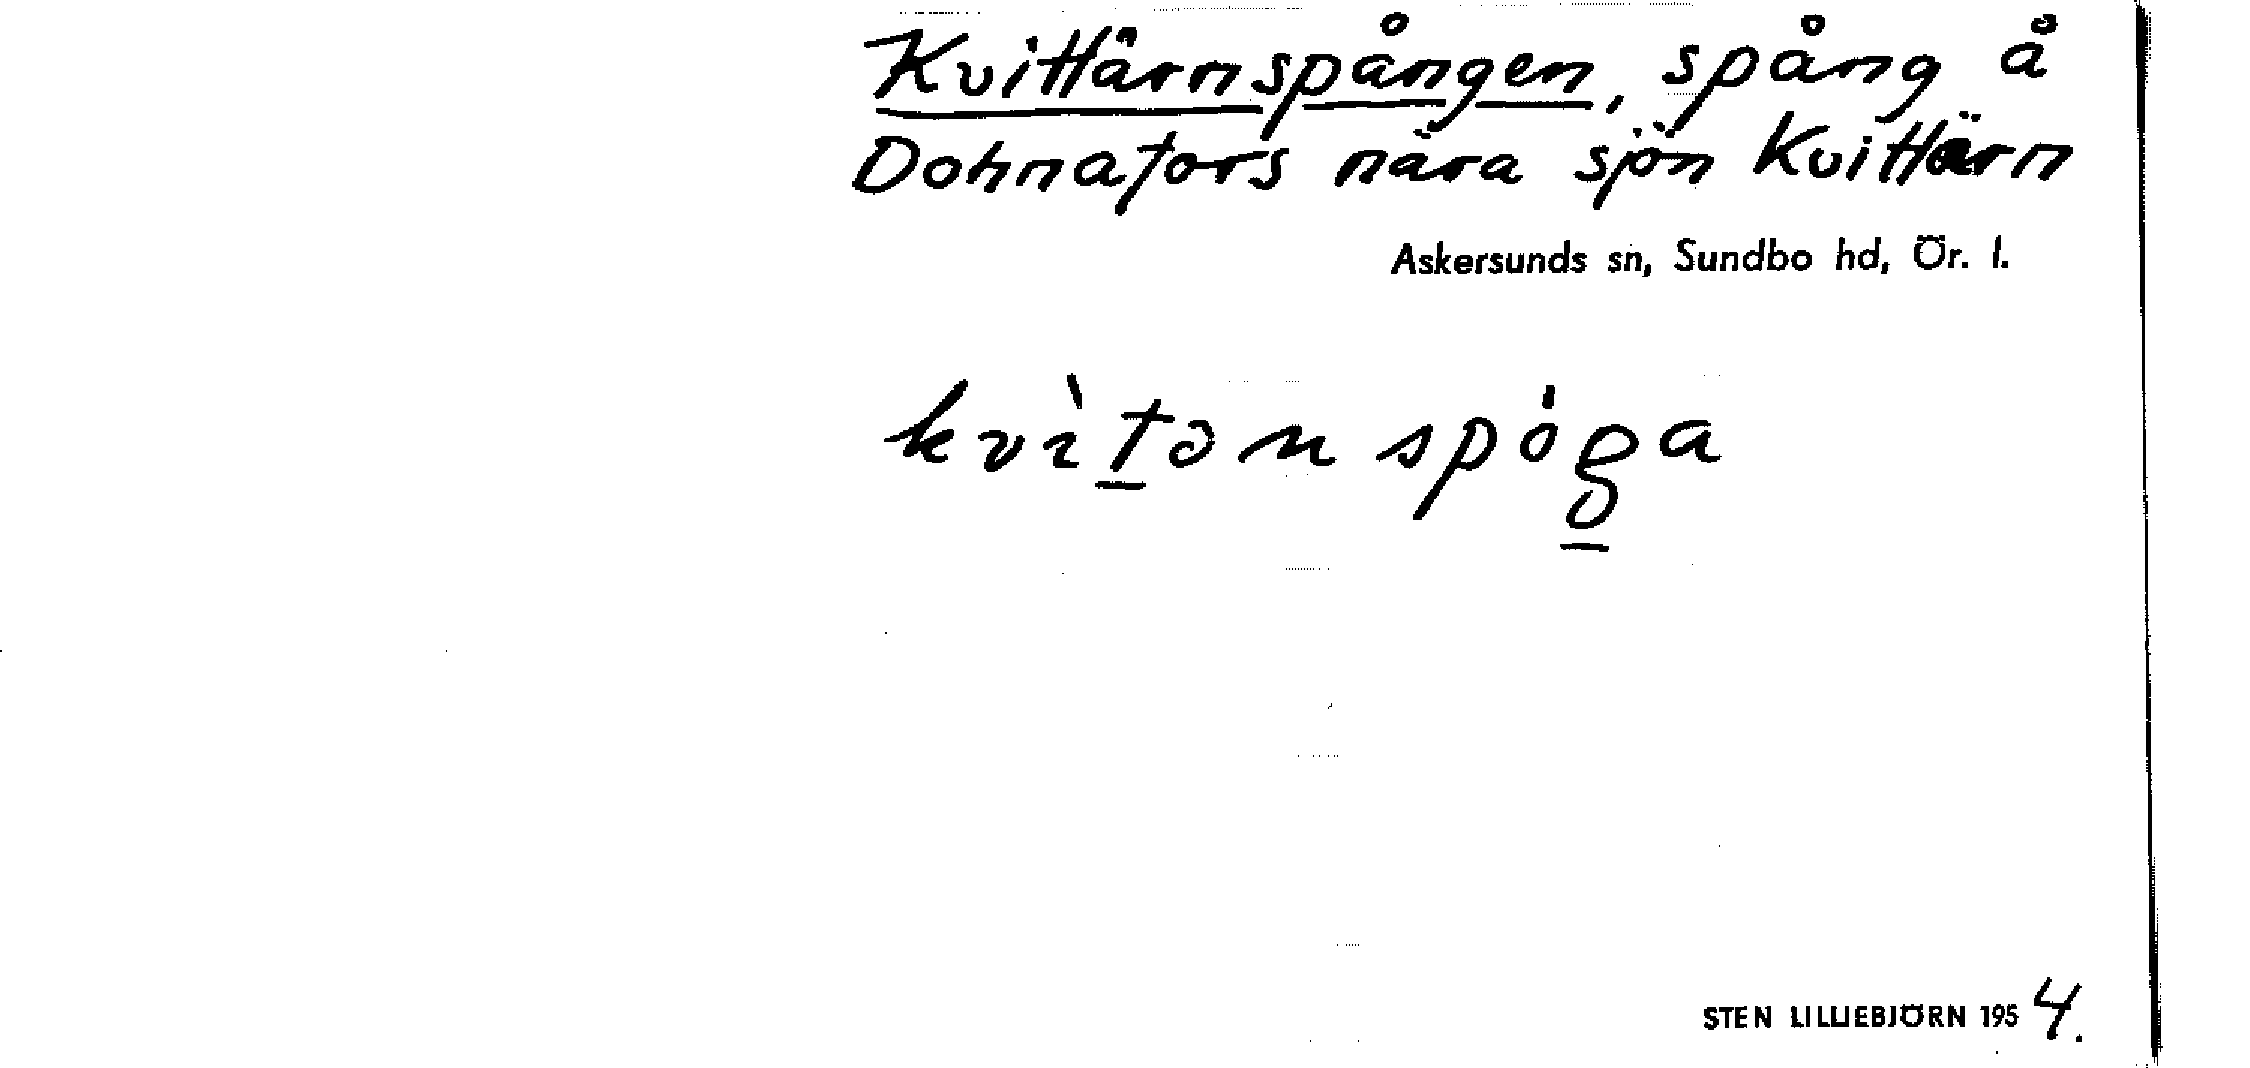 Kvittärnspången, spång å
Dohnafors nära sjön Kvittärn
Askersunds sn, Sundbo hd, Ör. l.
STEN LILLIEBJÖRN 1954.